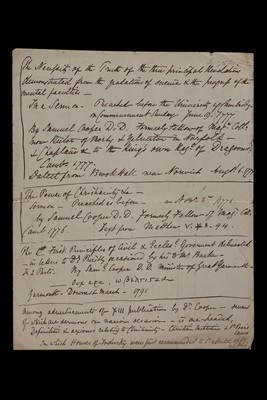 The Necessity of the Truth of the three principal Revelations
demonstrated from the gradations of science & the progress of the
mental faculties —
In a Sermon — Preached before the University of Cambridge
on Commencement Sunday June 29. 1777.
By Samuel Cooper D.D. Formerly Fellow of Magd. Coll:
now Rector of Morley & Yelverton in Norfolk
& Chaplain to the King's own Regt. of Dragoons.
Camb: 1777.
Dated from Brook Hall near Norwich Augst 6. 1777
The Power of Christianity &c
Sermon — Preached as before — on Novr. 3d 1776
by Samuel Cooper D.D. Formerly Fellow of Magd. Coll.
Camb 1776 Sept from
The 1st. Principles of Civil & Eccles: Government delineated
in letters to Dr Priestly occasioned by his to Mr Burke
in 2 Parts. By Saml. Cooper D.D. Minister of Great Yarmouth
Yarmouth — Downes & March — 1791
Among advertisements of XIII publication by Dr. Cooper — several
of which are sermons on various occasions —
Definitions & axioms relating to Christianity —
in which Houses of Industry were first recommended